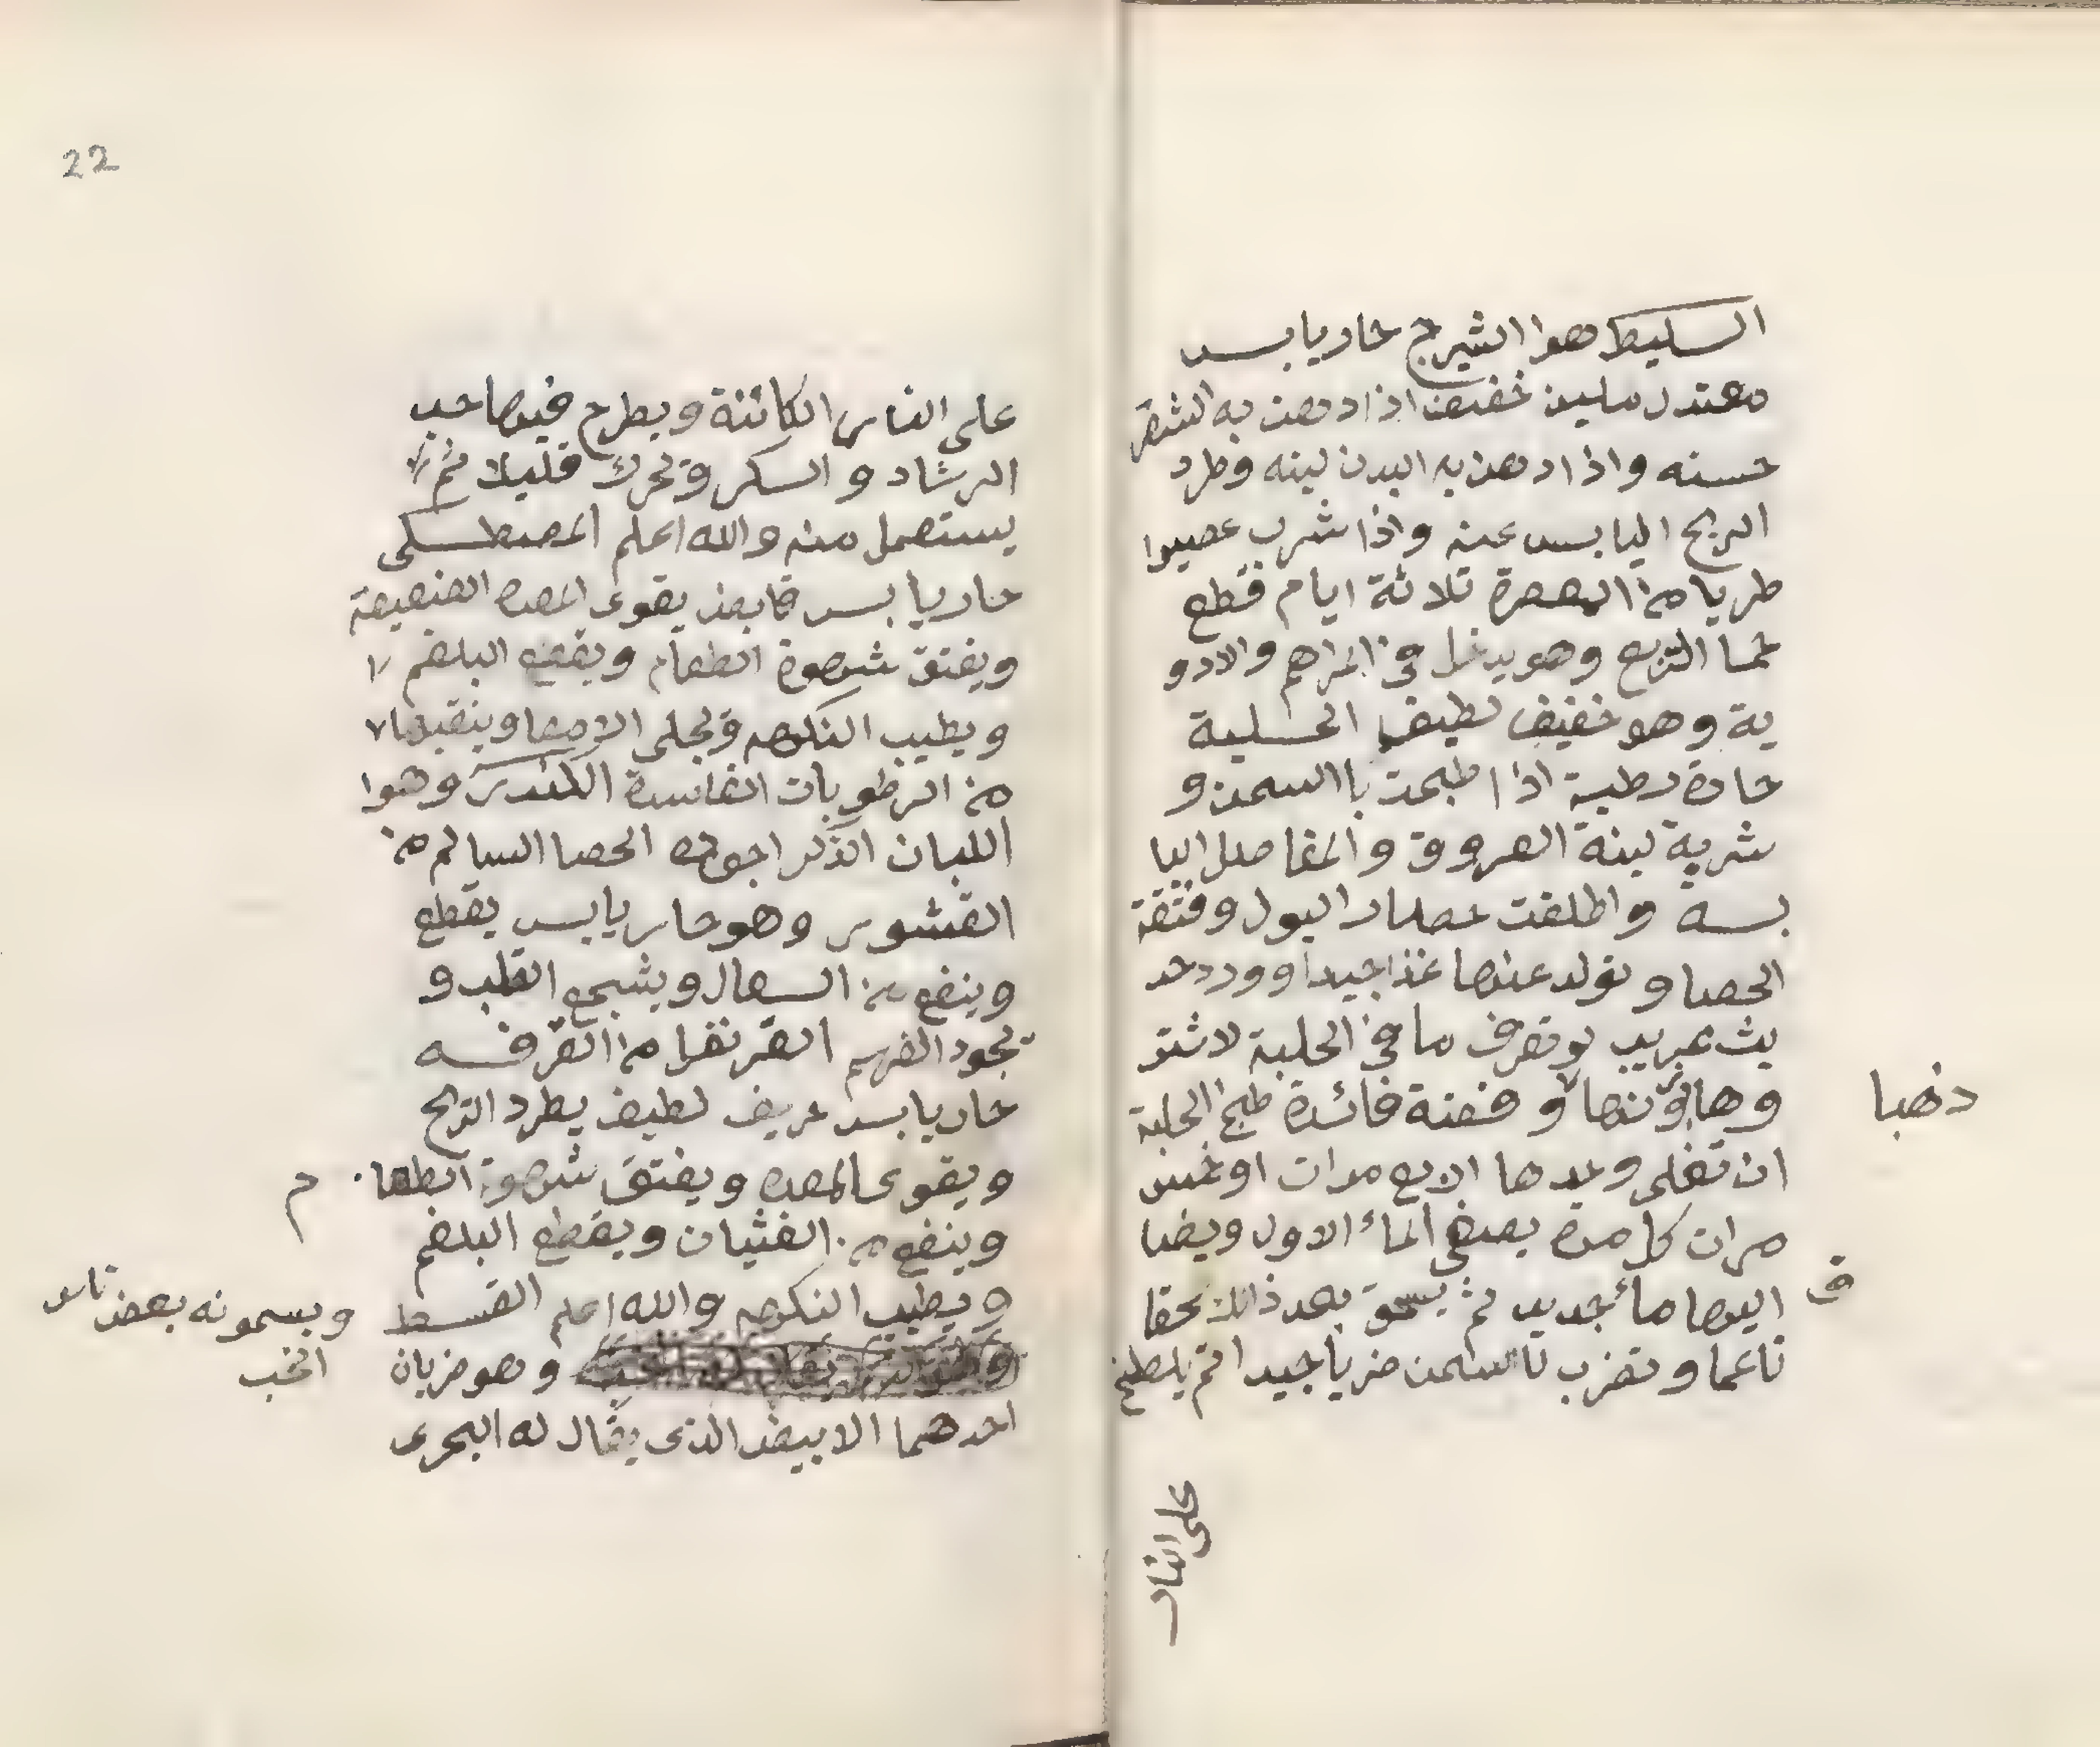 السليط هوا الشيرج حار يابس
معتدل ملين خفيف اذا دهن به الشعر
حسنه واذا دهن به البدن لينه وطرد
الريح اليابس عنه واذا شرب عصيرا
طريا من المعصرة ثلاثة ايام قطع
الربع وهو يدخل في المراهم والادو
ية وهو خفيف لطيف الحلبة
حارة رطبة اذا طبحت باالسمن و
شربة لينة العروق والمفاصل اليا
بسة واطلقت عصار البول وفتتة
الحصا وتولد عنها غذا جيدا وورد حد
يث غريب لو تعرف ما في الحلبة لاشتر
وها بوزنها و صفة فائدة طبخ الحلبة
ذهبا
ان تغلى وعدها اربع مرات او خمس
مرات كل مرة يصفى الماء الاول ويضا
ف
اليها ماء جديد ثم يسحق بعد ذالك سحقا
ناعما وتضرب باالسمن ضربا جيدا ثم يطبخ
على النار
22
على النار الكائنة ويطرح فيها حب
الرشاد والسكر وتحرك قليلا ثم
يستعمل منه والله اعلم المصطكى
حار يابس قابض يقوى المعده الضعيفة
ويفتق شهوة الطعام ويقطع البلغم
ويطيب النكهه وتجلى الامعا وينقيها
من الرطوبات الفاسدة الكندر وهوا
اللبان الذكر اجوده الحصا السالم من
القشور وهو حار يابس يقطع
وينفع من السعال ويشجع القلب و
يجود الفهم القرنفل من القرفه
حار يابس حريف لطيف يطرد الريح
ويقوى المعده ويفتق شهوة الطعا
م
وينفع من الغثيان ويقطع البلغم
ويطيب النكهه والله اعلم القسط
ويسمونه بعض ناس
وهو ضربان
احدهما الابيض الذى يقال له البحرى